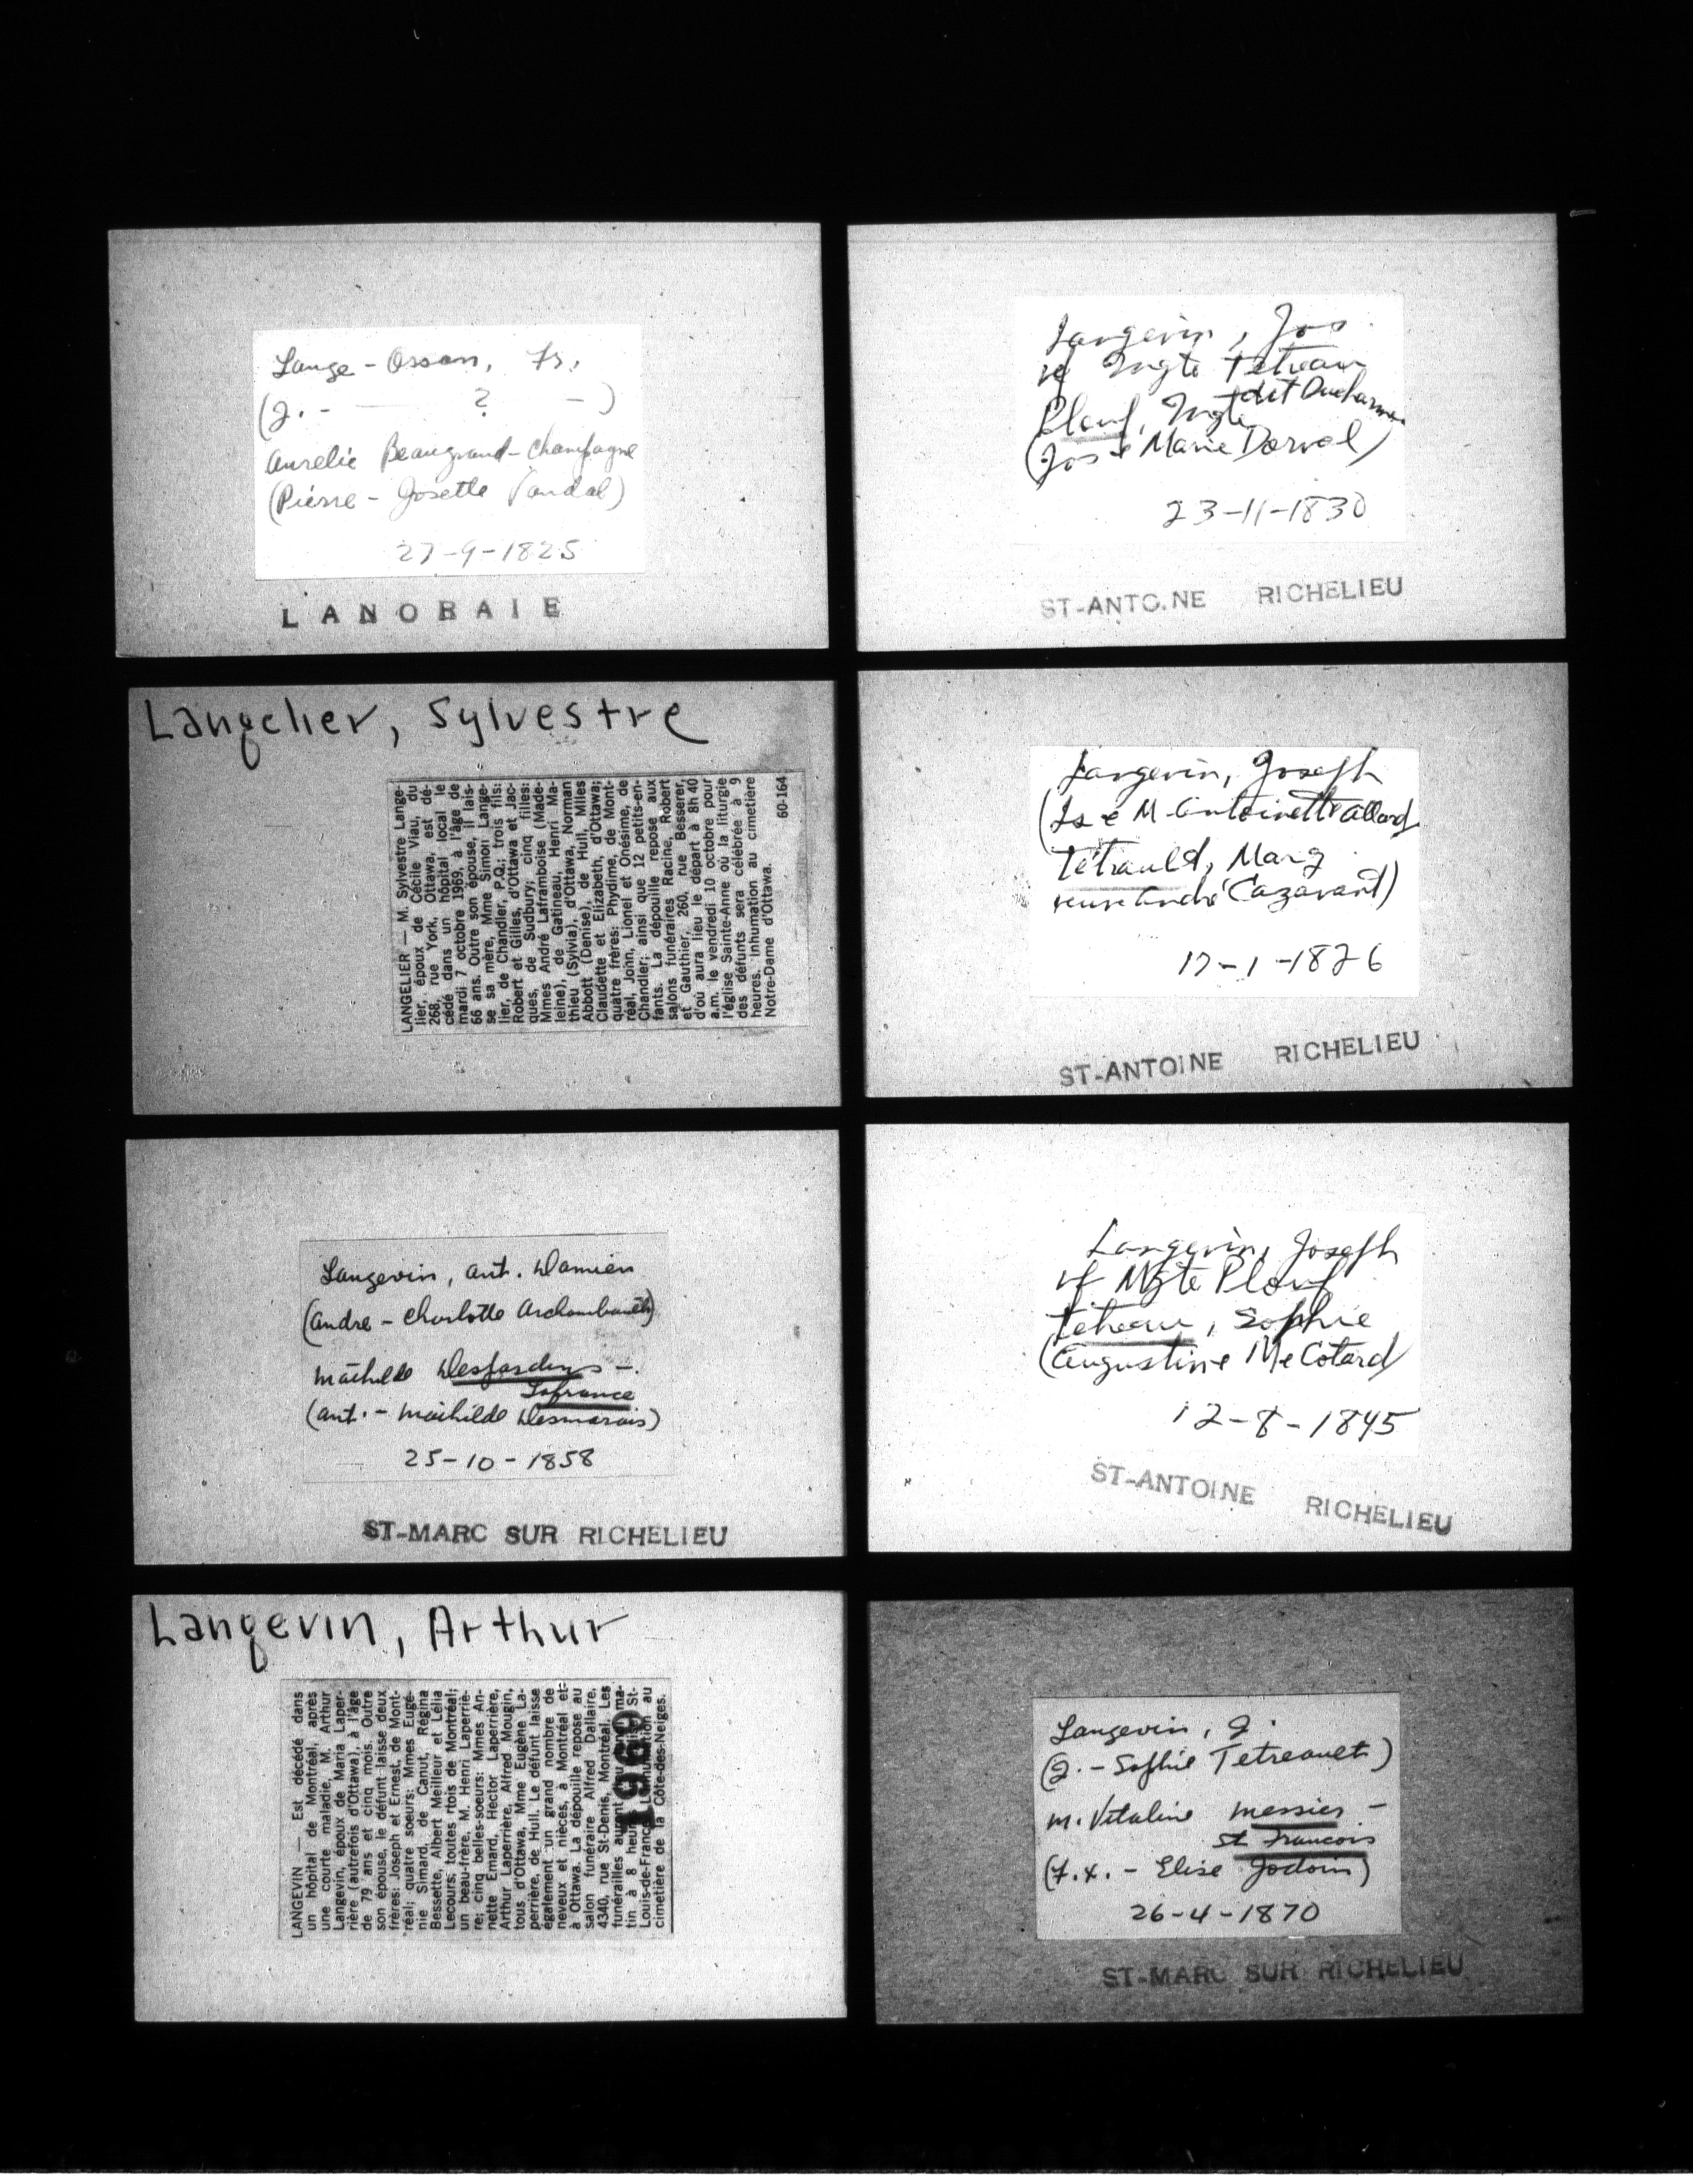 Lange-Osson, Fs.
(J. - ? - )
Aurelie Beaugrand-Champagne
(Pierre - Josette Vandal)
27-9-1825
LANORAIE
Langelier, Sylvestre
LANGELIER — M. Sylvestre Lange-
lier, époux de Cécile Viau, du
268, rue York, Ottawa, est dé-
cédé dans un hôpital local le
mardi 7 octobre 1969, à l'âge de
66 ans. Outre son épouse, il lais-
se sa mère, Mme Simon Lange-
lier, de Chandler, P.Q.; trois fils:
Robert et Gilles, d'Ottawa et Jac-
ques, de Sudbury; cinq filles:
Mmes André Laframboise (Made-
leine), de Gatineau, Henri Ma-
thieu (Sylvia), d'Ottawa, Norman
Abbott (Denise), de Hull, Mlles
Claudette et Elizabeth, d'Ottawa;
quatre frères: Phydime, de Mont-
réal, John, Lionel et Onésime, de
Chandler; ainsi que 12 petits-en-
fants. La dépouille repose aux
salons funéraires Racine, Robert
et Gauthier, 260, rue Besserer,
d'où aura lieu le départ à 8h 40
a.m. le vendredi 10 octobre pour
l'église Sainte-Anne où la liturgie
des défunts sera célébrée à 9
heures. Inhumation au cimetière
Notre-Dame d'Ottawa.
60-164
Langevin, Ant. Damien
(Andre - Charlotte Archambault)
Mathilde Desjardins -
Lafrance
(Ant. - Mathilde Desmarais)
25-10-1858
ST-MARC SUR RICHELIEU
Langevin, Arthur
LANGEVIN — Est décédé dans
un hôpital de Montréal, après
une courte maladie, M. Arthur
Langevin, époux de Maria Laper-
rière (autrefois d'Ottawa), à l'âge
de 79 ans et cinq mois. Outre
son épouse, le défunt laisse deux
frères: Joseph et Ernest, de Mont-
réal; quatre soeurs: Mmes Eugé-
nie Simard, de Canut, Régina
Bessette, Albert Meilleur et Lélia
Lecours, toutes rtois de Montréal;
un beau-frère, M. Henri Laperriè-
re; cinq belles-soeurs: Mmes An-
nette Emard, Hector Laperrière,
Arthur Laperrière, Alfred Mougin,
tous d'Ottawa, Mme Eugène La-
perrière, de Hull. Le défunt laisse
également un grand nombre de
neveux et nièces, à Montréal et
à Ottawa. La dépouille repose au
salon funéraire Alfred Dallaire,
4340, rue St-Denis, Montréal. Les
funérailles auront ma-
tin à 8 heures St-
Louis-de-France. Inhumation au
cimetière de la Côte-des-Neiges.
1969
Langevin, Jos
vf Mgte Tetreau
dit Ducharme
Plouf, Mgte
(Jos & Marie Dorval)
23-11-1830
ST-ANTOINE RICHELIEU
Langevin, Joseph
(Is & M-Antoinette Allard
Tétrauld, Marg
veuve André Cazavant)
17-1-1826
ST-ANTOINE RICHELIEU
Langevin, Joseph
vf Mgte Plouf
Tetreau, Sophie
(Augustin & Me Cotard)
12-8-1845
ST-ANTOINE RICHELIEU
Langevin, J.
(J. - Sophie Tetreault)
M. Vitaline Messier -
St Francois
(F.X. - Elise Jodoin)
26-4-1870
ST-MARC SUR RICHELIEU